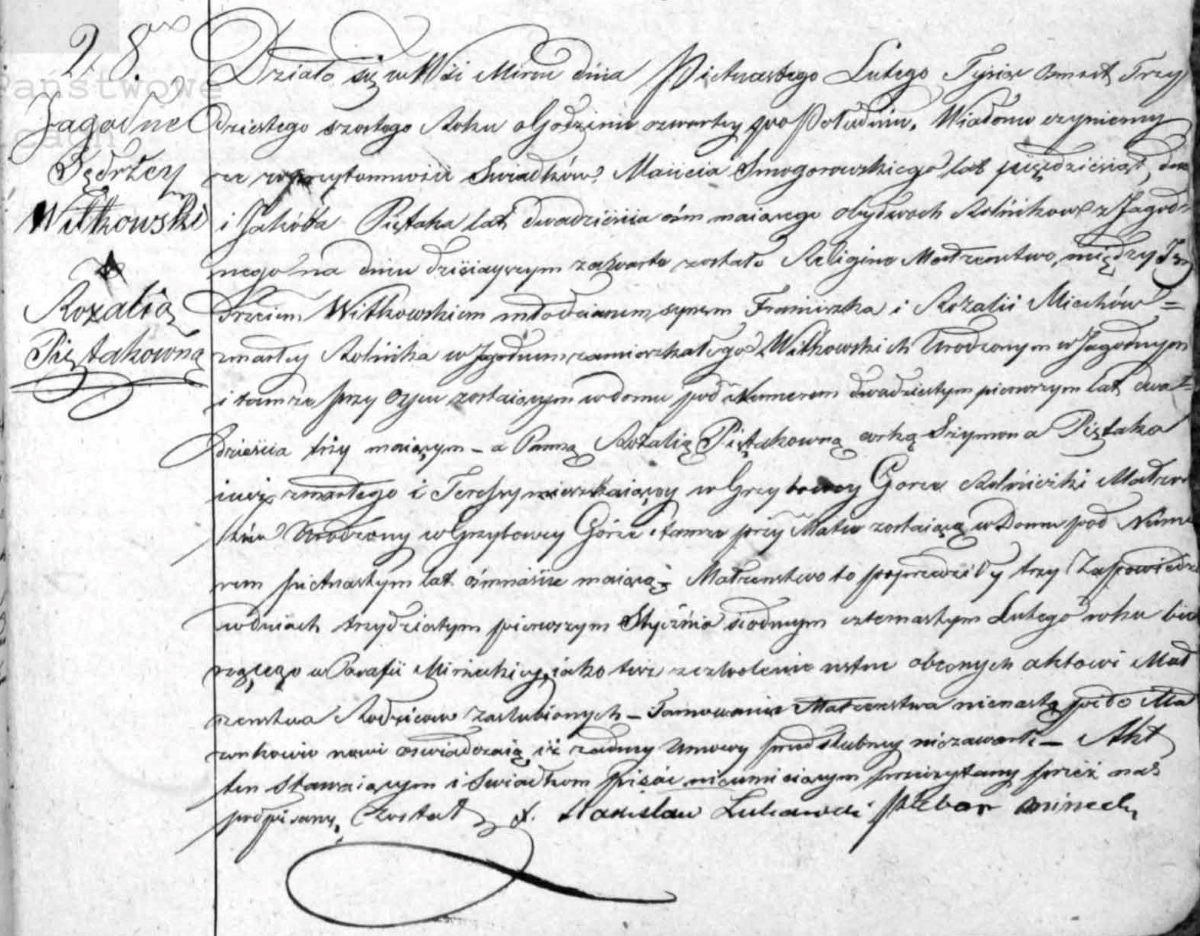 28
Jagodne
Jędrzey
Witkowski
Rozalia
Piętakowna
Działo się w Wsi Mircu dnia Pietnastego Lutego Tysiąc Osmset Trzy
dziestego szostego Roku o Godzinie czwartey po Południu. Wiadomo czyniemy
że w przytomności Swiadków Macieia Smogorowskiego lat pięcdziesiąt dwa
i Jakóba Piętaka lat dwadzieścia ośm maiącego obydwoch Rolników z Jagod-
nego na dniu dzisieyszym zawarte zostało Religine Małżenstwo między Ję
drzeiem Witkowskiem młodzianem, synem Franciszka i Rozalii Mieków
zmarłey Rolnika w Jagodnem zamieszkałego Witkowskich Urodzonym w Jagodnym
i tamże przy Oycu zostaiącym w domu pod Numerem dwadziestym pierwszym lat dwa=
dzieścia trzy maiącym – a Panną Rozalią Piętakowną corką Szymona Piętaka
iuż zmarłego i Teressy mieszkaiący w Grzybowey Gorze Rolniczki Małżon
ków Urodzony w Grzybowey Górze i tamże przy Matce zostaiącą w Domu pod Nume
rem pietnastym lat ośmnaście maiącą. Małżenstwo to poprzedziły trzy Zapowiedzi
w dniach trzydziestym pierwszym Stycznia siodmym czternastym Lutego roku bie
żącego w Parafii Mireckiey, iako też zezwolenie ustne obecnych aktowi Mał
żenstwa Rodziców zaslubionych – Tamowanie Małżenstwa nienastąpiło Ma
łżonkowie nowi oświadczaią iż żadney Umowy przedslubney niezawarli – Akt
ten stawaiącym i Swiadkom pisać nieumieiącym przeczytany przez nas
podpisany Został X. Stanisław Lukawski Pleban Mireck